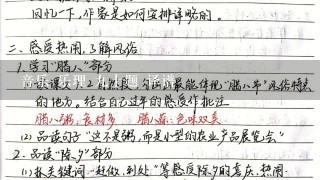 回忆一下，作家是如何安排详略的。
二、感受热闹，了解风俗
1.学习"腊八"部分
最能体现"腊八节"风俗特点
的地方。结合自己过年的感受作批注
腊八粥：食材多 腊八蒜：色味双美
(2)品读句子"这不是粥，而是小型的农业产品展览会"
2.品读"除夕"部分
(1)抓关键词"赶做、到处"等感受除夕的喜庆、热闹。